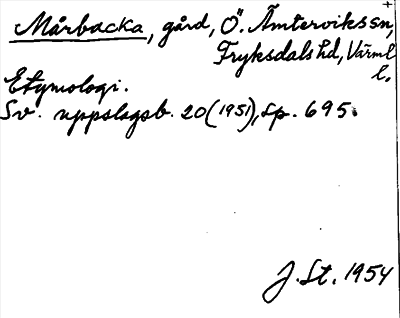 Mårbacka, gård, Ö. Ämtervikssn,
Fryksdals hd, Värml
l.
Etymologi.
Sv. uppslagsb. 20 (1951), sp. 695.
J. St. 1954